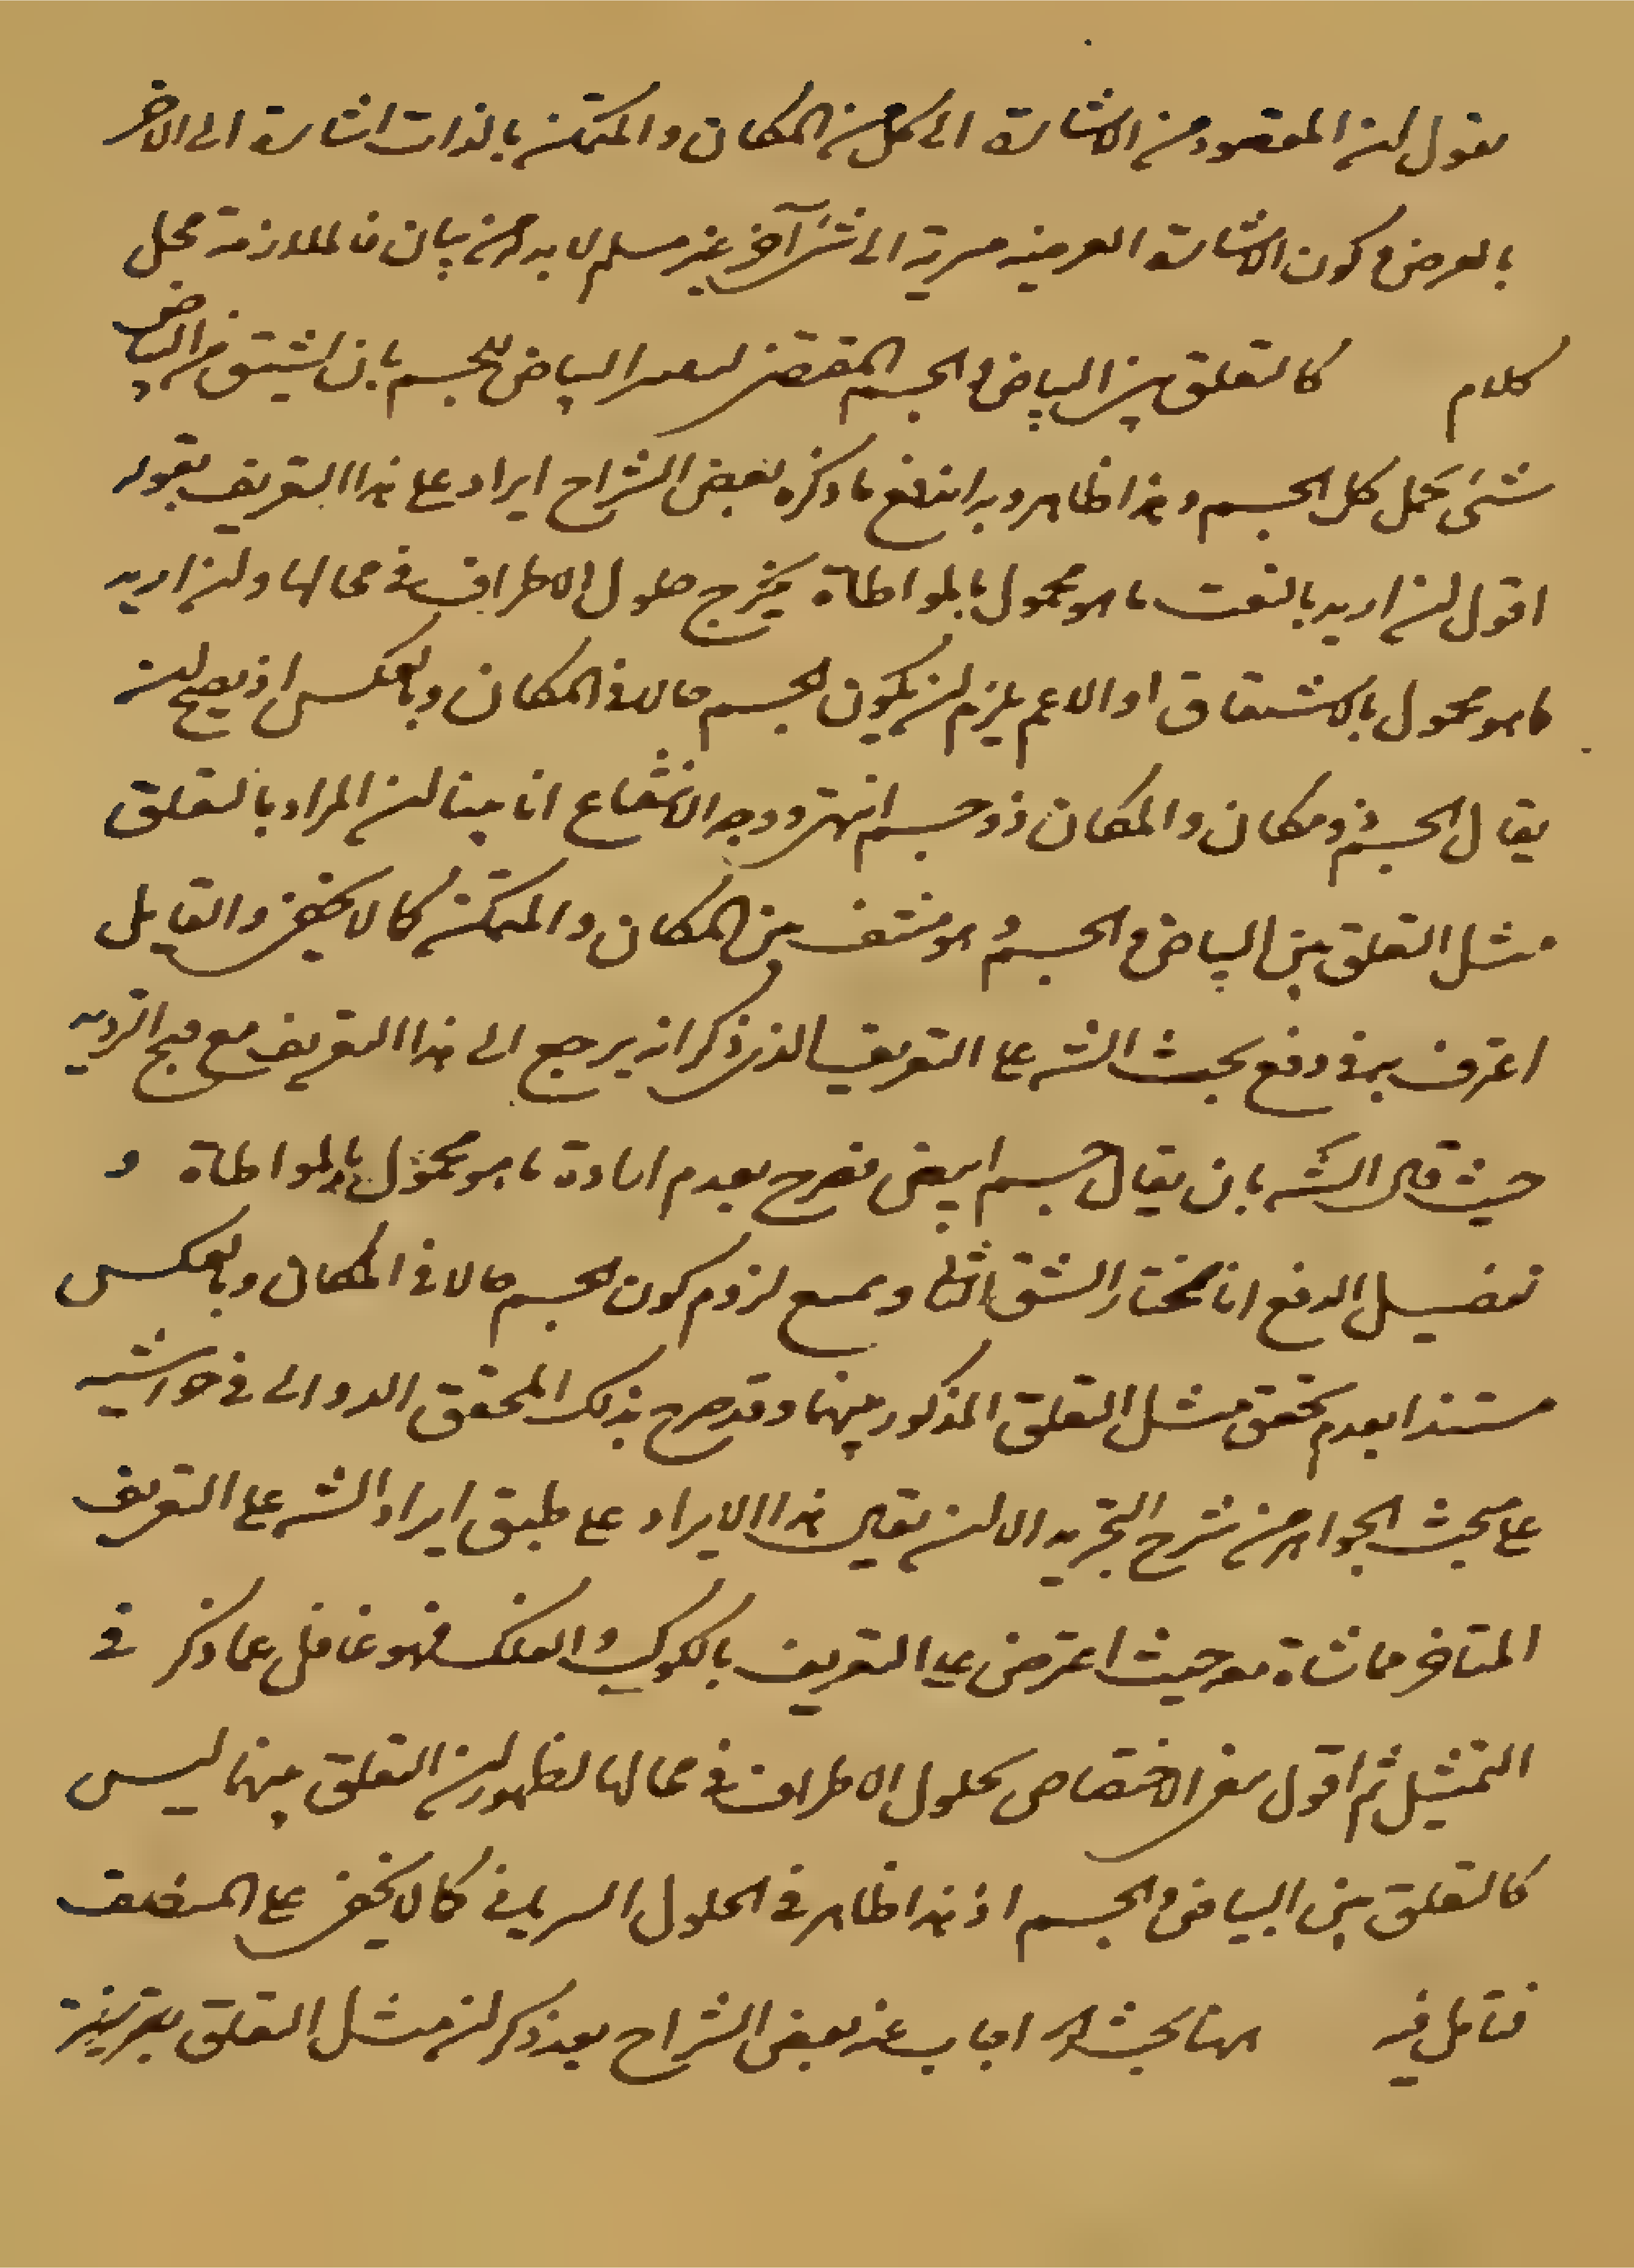 يقول ان المقصود من الاشارة الى كل من المكان والمتمكن بالذات اشارة الى الاخر
بالعرض وكون الاشارة العرضية مسرية الى شئ آخر غير مسلم لا بد من بيان فالملازمة محل
كلام كالتعلق بين البياض والجسم المقتضى البياض للجسم بان يشتق من البياض
شئ يحمل كل الجسم وهذا ظاهر وبه اندفع ما ذكره بعض الشراح ايراد على هذا التعريف بقوله
اقول ان اريد بالنعت ما هو محمول بالمواطاة يخرج حلول الاطراف في محالها وان اريد
ما هو محمول بالاشتقاق او الاعم يلزم ان يكون الجسم حالا في المكان وبالعكس اذ يصح ان
يقال الجسم ذو مكان والمكان ذو جسم انتهى ووجه الاندفاع انا بينا ان المراد بالتعلق
مثل التعلق بين البياض والجسم وهو منتف بين المكان والمتمكن كما لا يخفى والقايل
اعترف به في دفع بحث الشه على التعريف الذى ذكر انه يرجع الى هذا التعريف مع قبح الترديد
حيث قال الشه بان يقال جسم ابيض فصرح بعدم ارادة ما هو محمول بالمواطاة و
تفضيل الدفع انا نختار الشق الثانى ونمنع لزوم كون الجسم حالا في المكان وبالعكس
مستندا بعدم تحقق مثل التعلق المذكور بينهما وقد صرح بذلك المحقق الدوانى في حواشيه
على مبحث الجواهر من شرح التجريد الا ان يقال هذا الايراد على طبق ايراد الشه على التعريف
المتاخر معه حيث اعترض على التعريف بالكوكب والفلك فهو غافل عما ذكر في
التمثيل ثم اقول الاختصاص بحلول الاطراف في محالها لظهور ان التعلق بينهما ليس
كالتعلق بين البياض والجسم اذ هذا ظاهر في الحلول السريانى كما لا يخفى على المنصف
فتامل فيه هنا بحث اجاب عنه بعض الشراح بعد ذكر ان مثل التعلق بقرينة